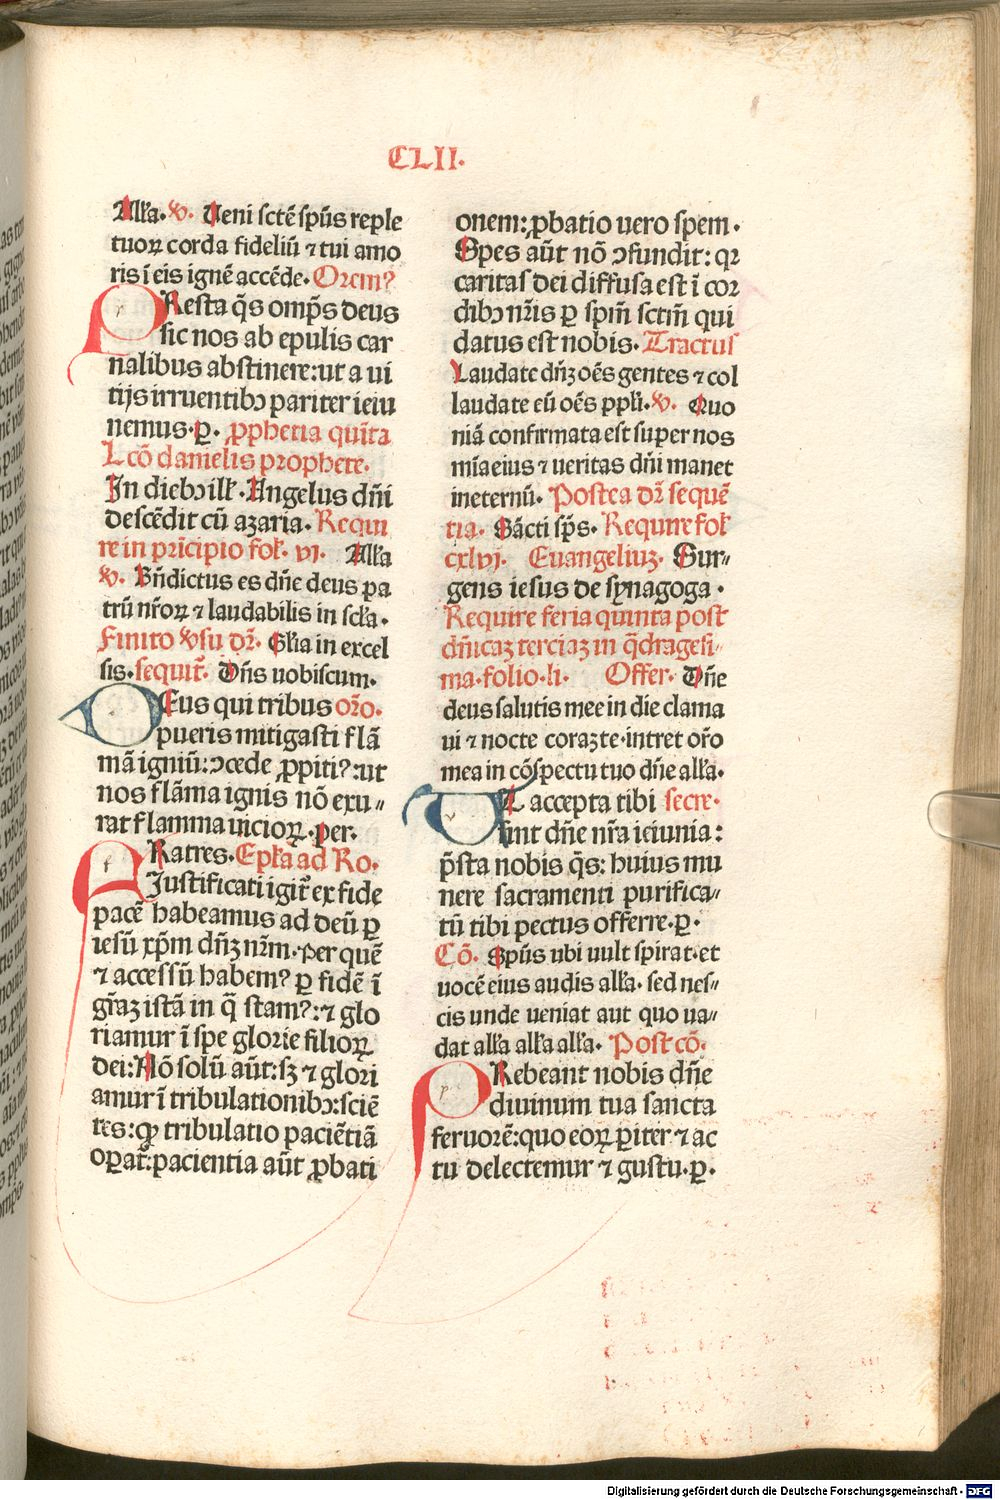 CLII.
Alła. ℣. Ueni sctē spūs reple
tuoꝝ corda fideliū ⁊ tui amo
ris ī eis ignē accēde. Orem?
PResta q̄s omp̄s deus
sic nos ab epulis car
nalibus abstinere: ut a ui
tijs irruentibꝫ pariter ieiu
nemus. ꝑ. ꝓphetia quīta
Lcō danielis prophete.
In diebꝫ ill̄. Angelus dn̄i
descēdit cū azaria. Requi
re in prīcipio fol̄. vi. Alła
℣. Bn̄dictus es dn̄e deus pa
trū nr̄oꝝ ⁊ laudabilis in scła.
Finito ℣su dr̄. Głia in excel
sis. sequit᷑. Dn̄s uobiscum.
DEus qui tribus oro.
pueris mitigasti flā
mā igniū: ↄcede ꝓpiti?: ut
nos flāma ignis nō exu„
rat flamma uicioꝝ. per.
FRatres. Epła ad Ro.
Iustificati igit᷑ ex fide
pacē habeamus ad deū ꝑ
iesū xp̄m dn̄ꝫ nr̄m. Per quē
⁊ accessū habem? ꝑ fidē ī
gr̄aꝫ istā in q̄ stam?: ⁊ glo
riamur ī spe glorie filioꝝ
dei: Nō solū aūt: sꝫ ⁊ glori
amur ī tribulationibꝫ: sciē
tes: ꝙ tribulatio paciētiā
oꝑat᷑: pacientia aūt ꝓbati
onem: ꝓbatio uero spem.
Spes aūt nō ↄfundit: qꝛ
caritas dei diffusa est ī cor
dibꝫ nr̄is ꝑ spm̄ sctm̄ qui
datus est nobis. Tractus
Laudate dn̄ꝫ oēs gentes ⁊ col
laudate eū oēs ppłi. ℣. Quo
niā confirmata est super nos
mīa eius ⁊ ueritas dn̄i manet
in eternū. Postea dr̄ sequē
tia. Sācti sp̄s. Require fol̄
cxlvj. Euangeliuꝫ. Sur„
gens iesus de synagoga.
Require feria quinta post
dn̄icaꝫ terciaꝫ in q̄dragesi„
ma. folio. li. Offer. Dn̄e
deus salutis mee in die clama
ui ⁊ nocte coraꝫ te. intret or̄o
mea in cōspectu tuo dn̄e ałła.
UT accepta tibi secre.
sint dn̄e nr̄a ieiunia:
p̄sta nobis q̄s: huius mu
nere sacramenti purifica„
tū tibi pectus offerre. ꝑ.
Cō. Spūs ubi uult spirat. et
uocē eius audis ałła. sed nes„
cis unde ueniat aut quo ua„
dat ałła ałła ałła. Post cō.
PRebeant nobis dn̄e
diuinum tua sancta
feruorē: quo eoꝝ ꝑiter ⁊ ac
tu delectemur ⁊ gustu. ꝑ.
Digitalisierung gefördert durch die Deutsche Forschungsgemeinschaft - DFG